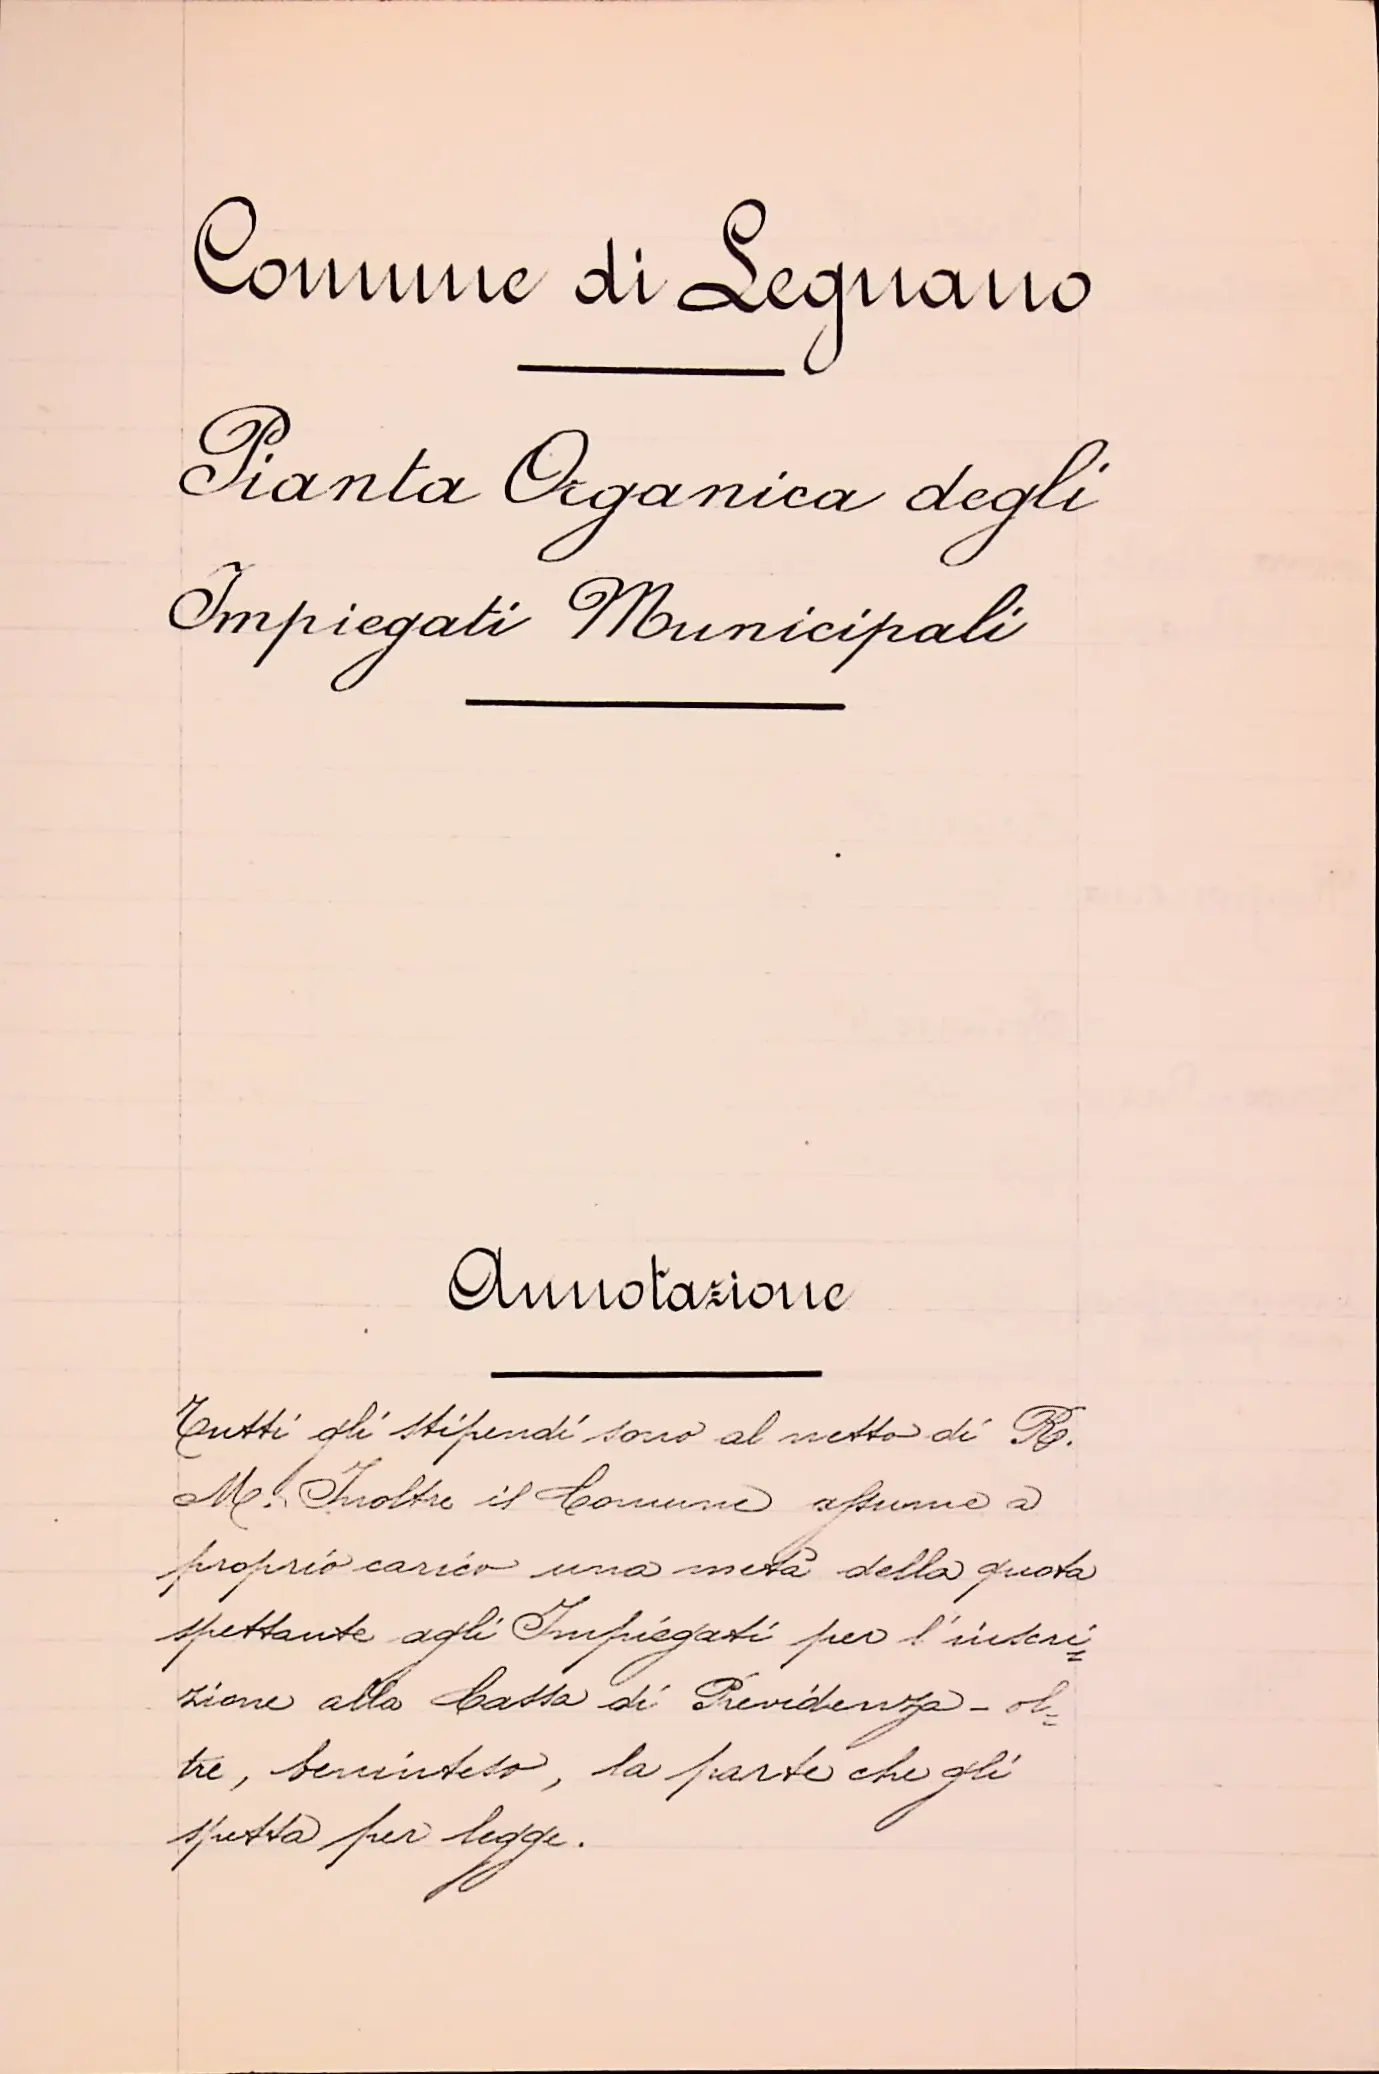 Comune di Legnano
Pianta Organica degli
Impiegati Municipali
Annotazione
Tutti gli stipendi sono al netto di R.
M. Inoltre il Comune assume a
proprio carico una metà della quota
spettante agli Impiegati per l'inscri=
zione alla Cassa di Previdenza - ol=
tre, beninteso, la parte che gli
spetta per legge.